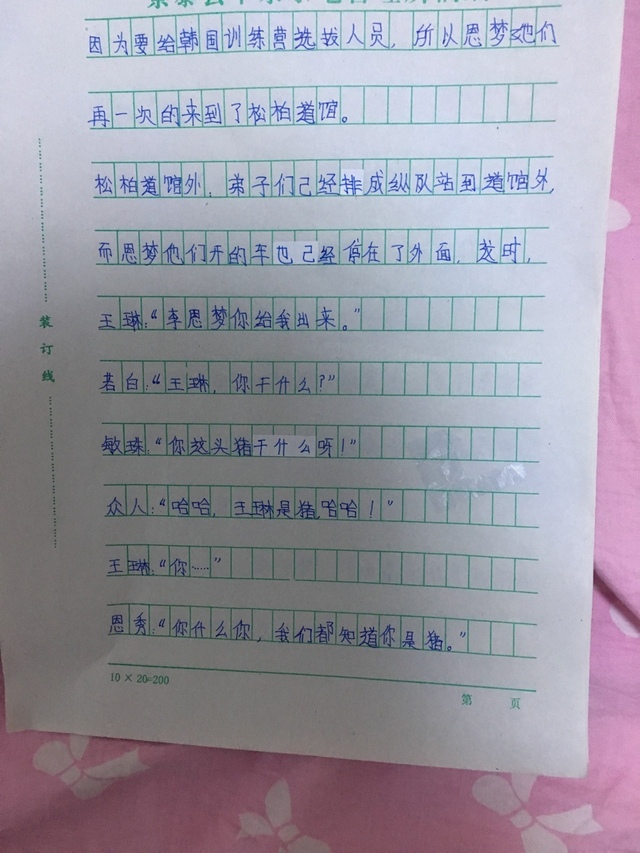 因为要给韩国训练营选拔人员，所以思梦她们
再一次的来到了松柏道馆。
松柏道馆外，弟子们己经排成纵队站到道馆外，
而思梦他们开的车也己经停在了外面，这时，
王琳：“李思梦你给我出来。”
若白：“王琳，你干什么？”
敏珠：“你这头猪干什么呀！”
众人：“哈哈，王琳是猪哈哈！”
王琳：“你……”
恩秀：“你什么你，我们都知道你是猪。”
装订线
10×20=200
第 页